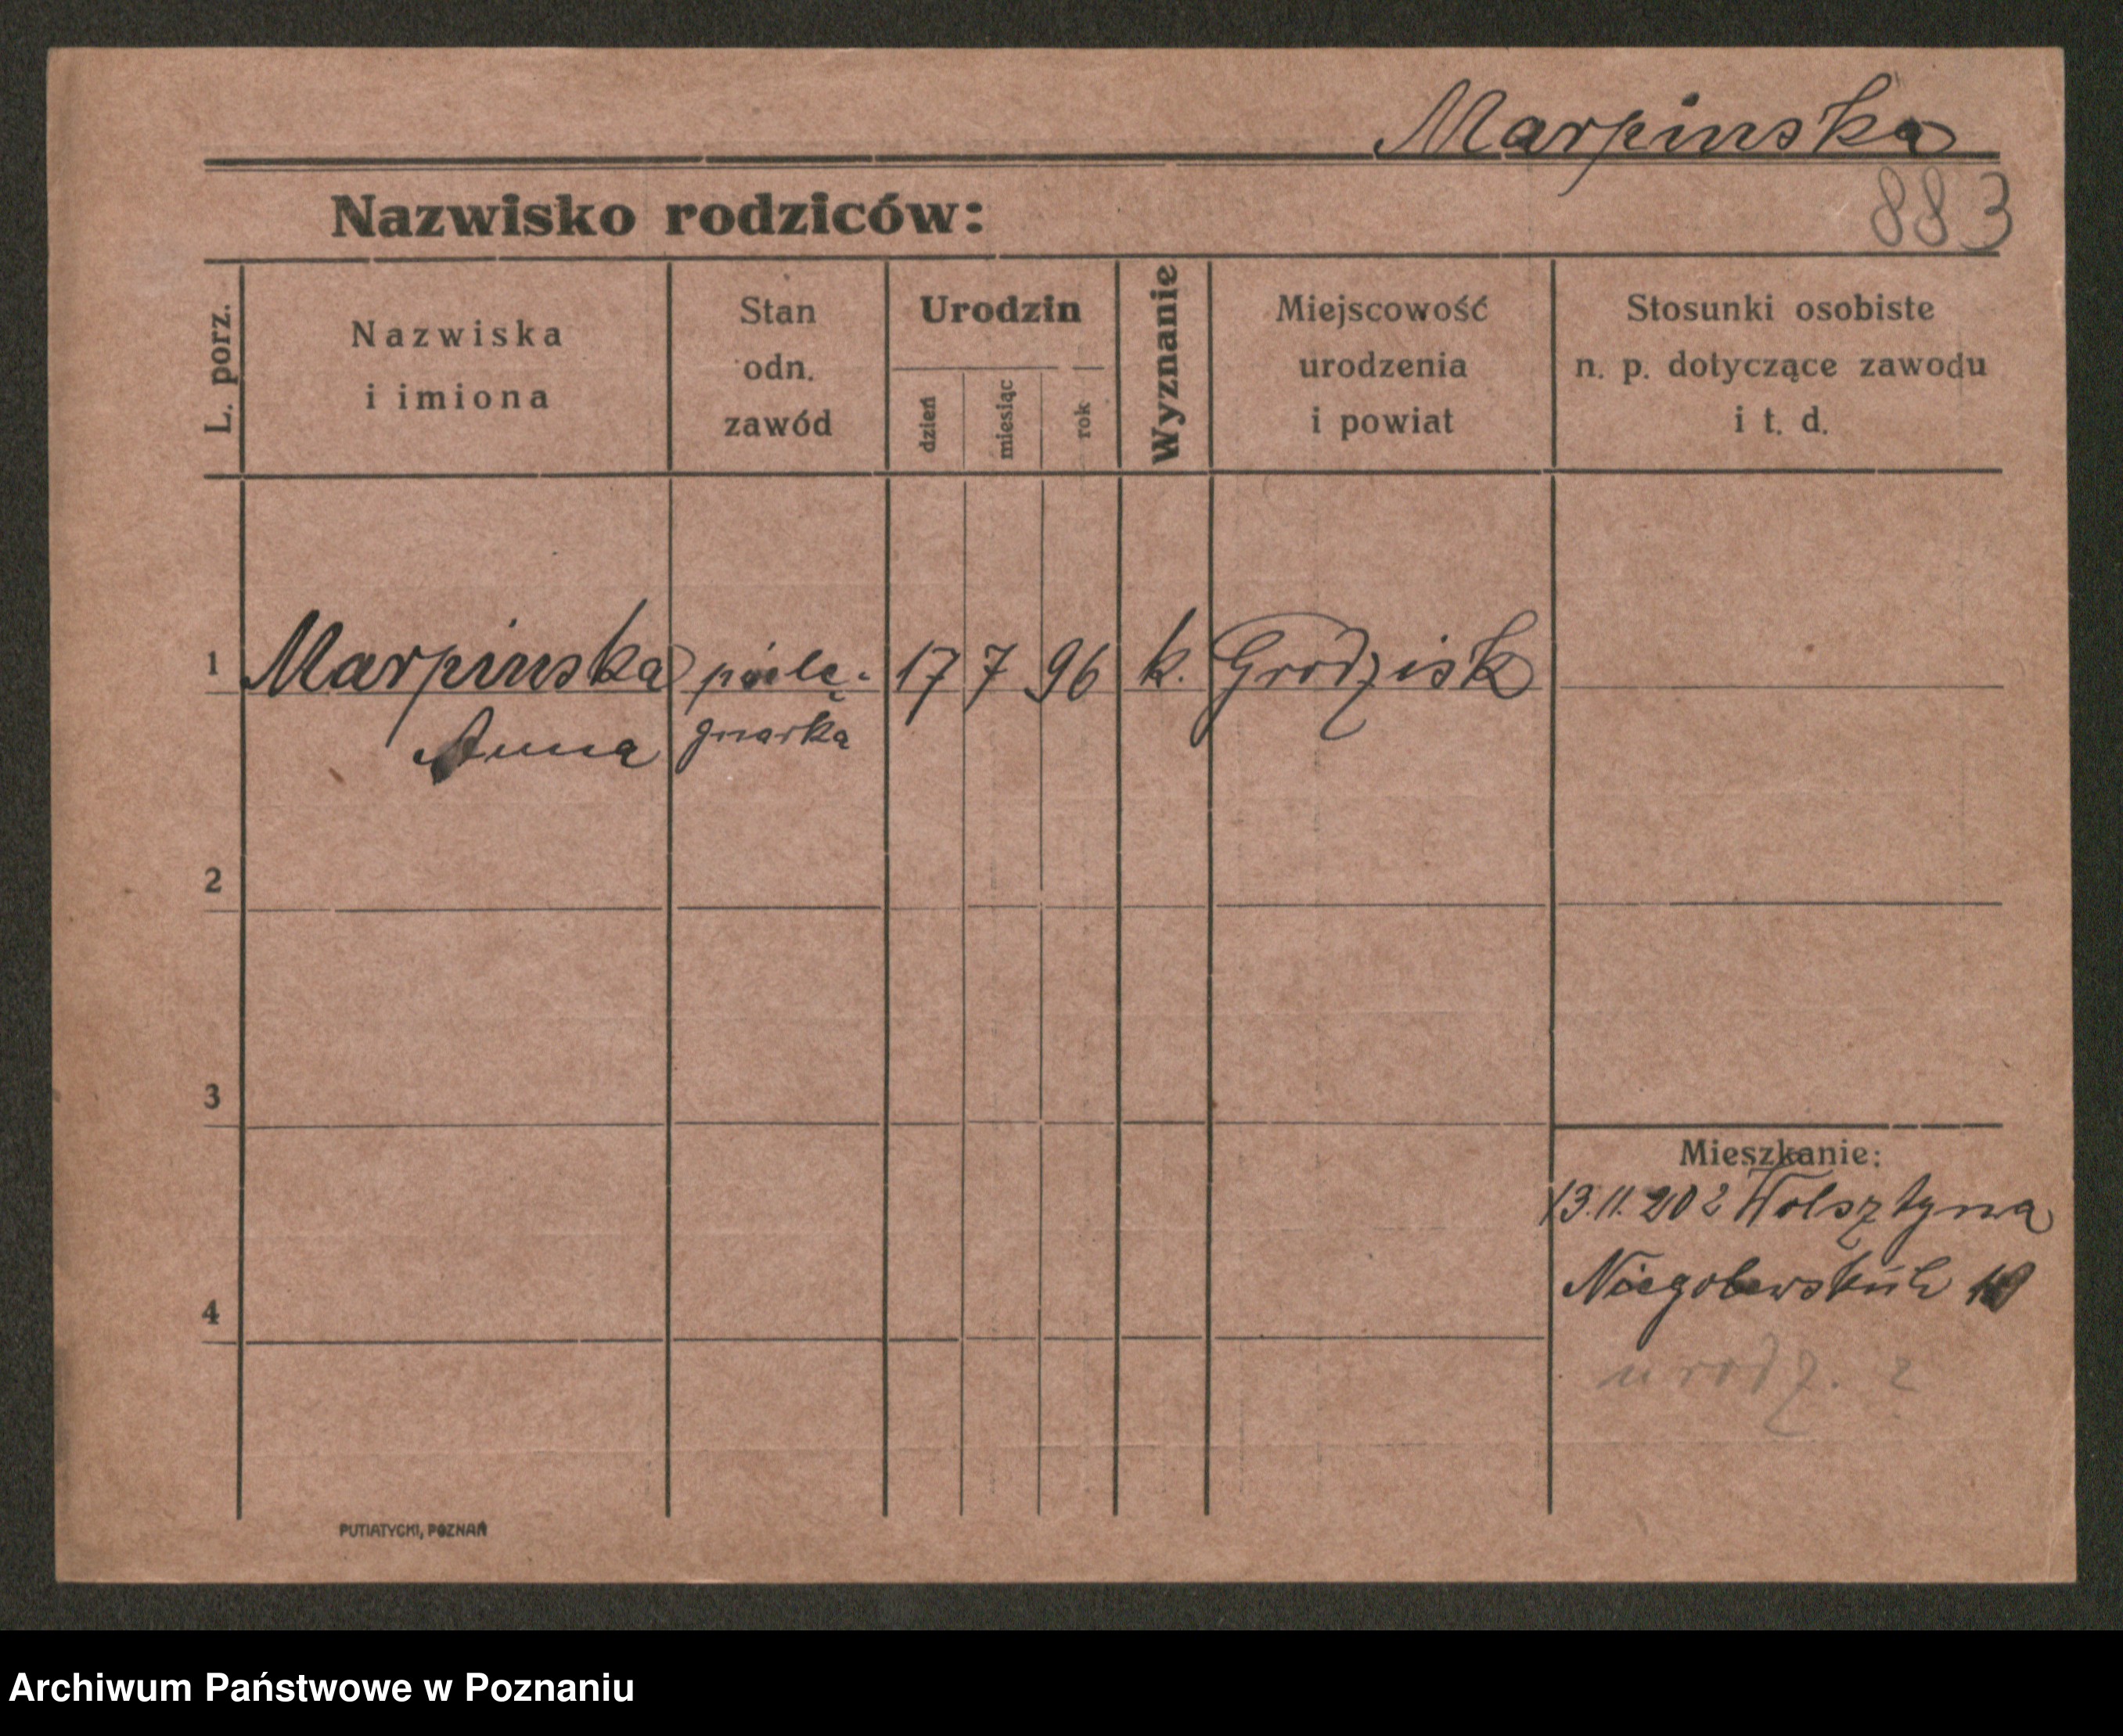 Marpinska
883
Nazwisko rodziców:
L. porz.
Nazwiska
i imiona
Stan
odn.
zawód
Urodzin
dzień
miesiąc
rok
Wyznanie
Miejscowość
urodzenia
i powiat
Stosunki osobiste
n. p. dotyczące zawodu
i t. d.
1 Marpinska pielę- 17 7 96 k. Grodzisk
Anna gnarka
2
3
4
Mieszkanie:
13.11.20 z Wolsztyna
Niegolewskich
urodz. z
PUTIATYCKI, POZNAŃ
Archiwum Państwowe w Poznaniu